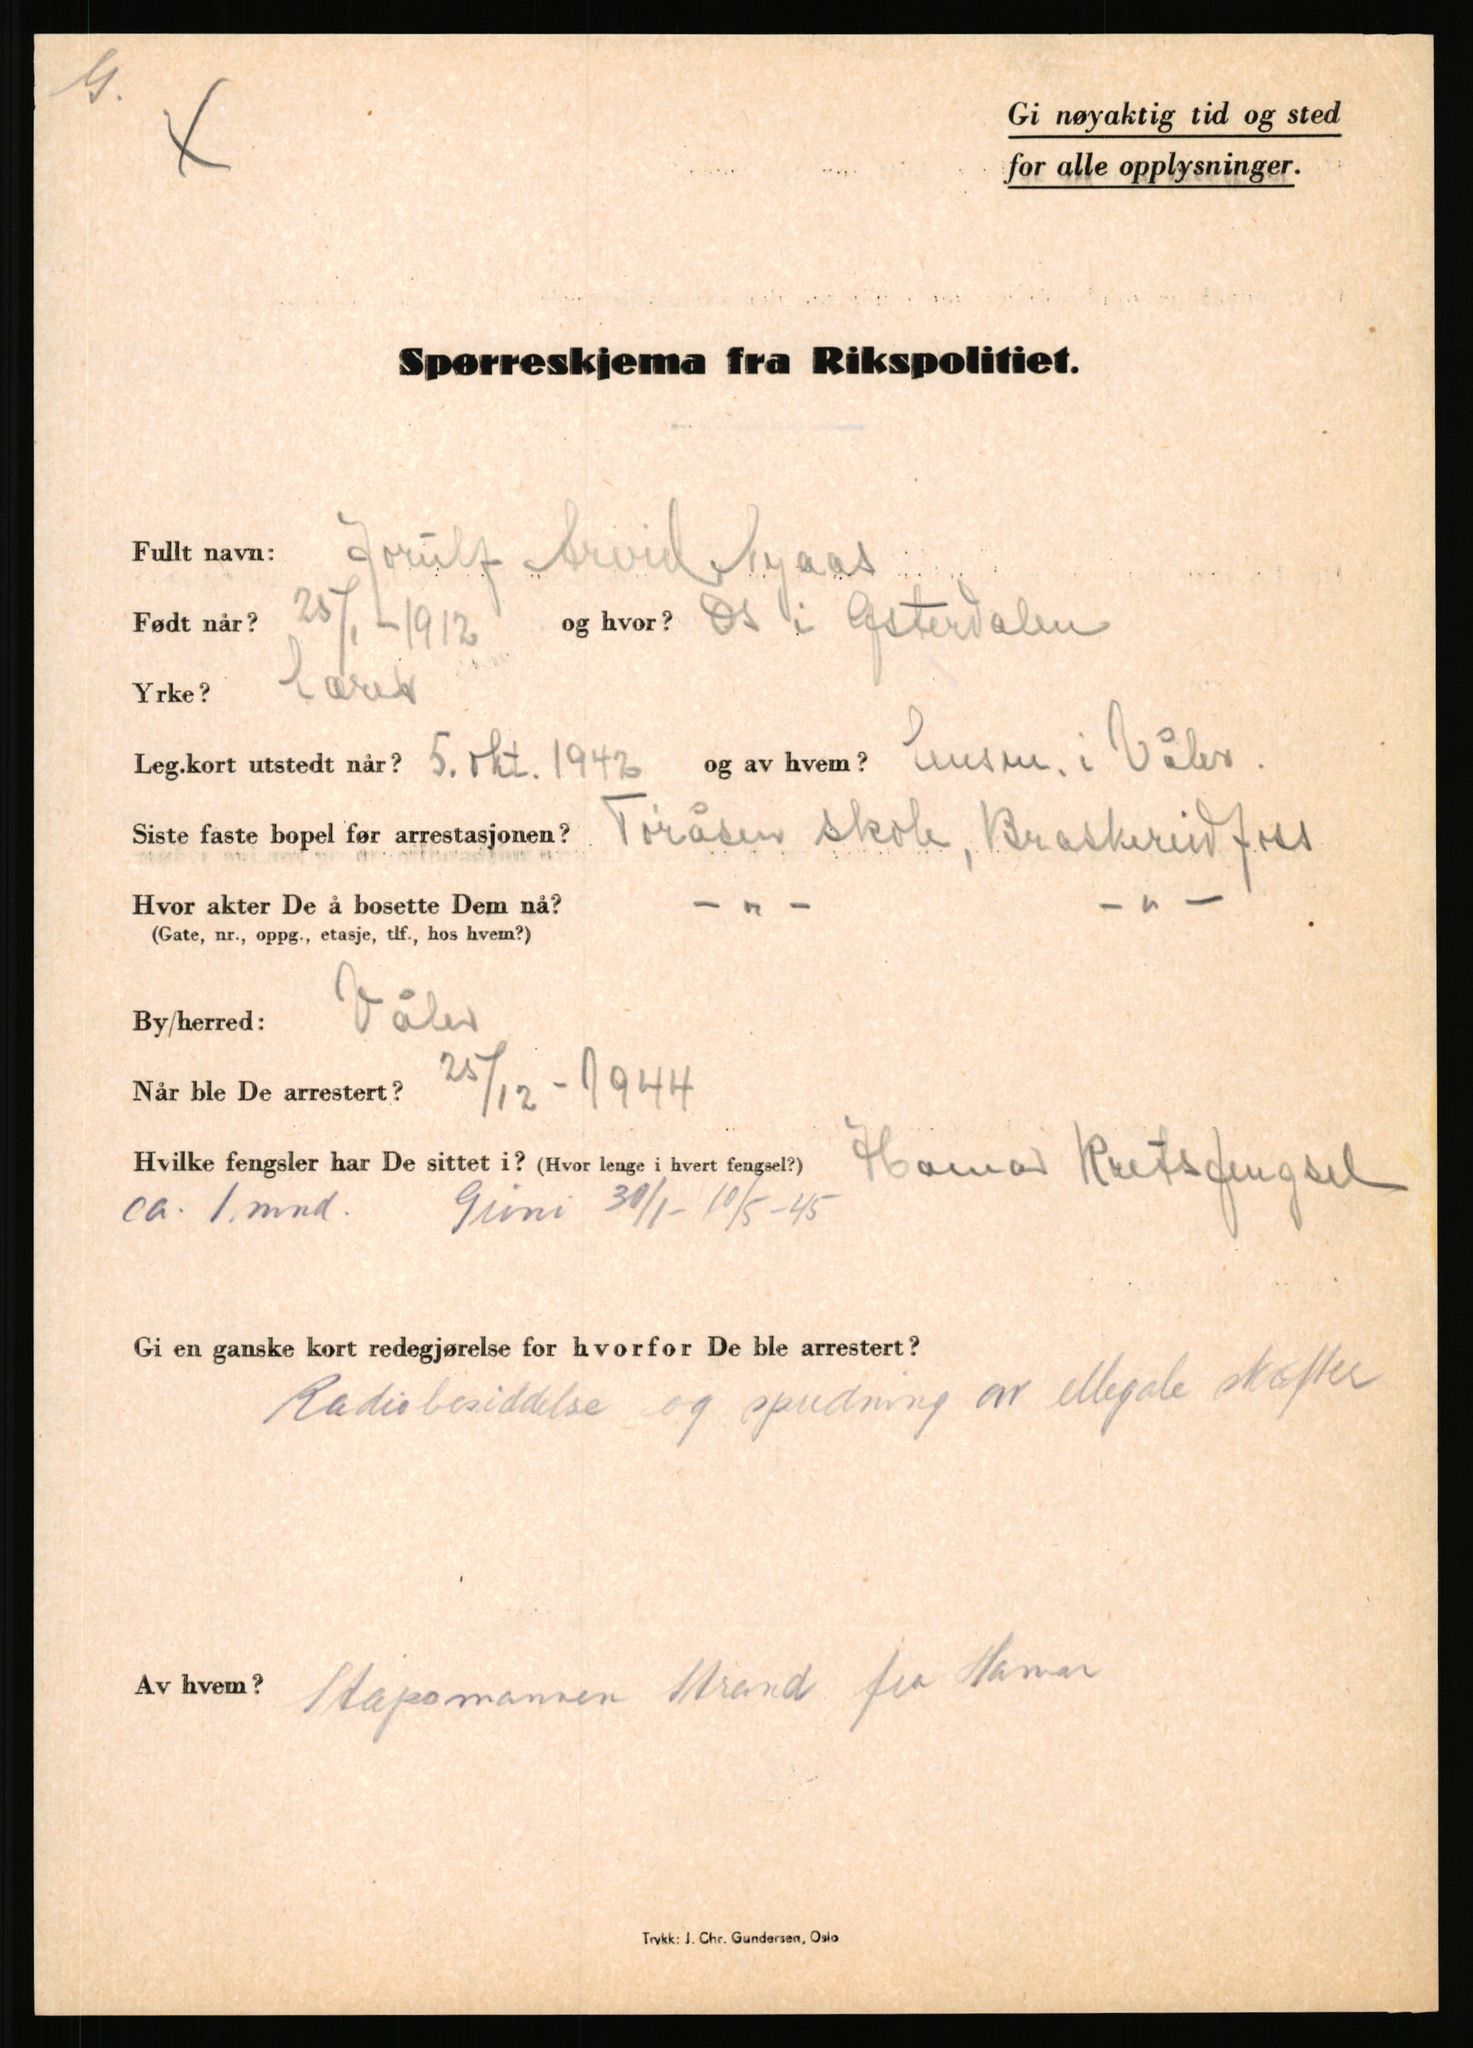 G.
Gi nøyaktig tid og sted
for alle opplysninger.
Spørreskjema fra Rikspolitiet.
Fullt navn: Jorulf Arvid Nyaas
Født når? 25/1 - 1912 og hvor? Os i Østerdalen
Yrke? Lærer
Leg.kort utstedt når? 5. okt. 1942 og av hvem? Lensm. i Våler.
Siste faste bopel før arrestasjonen? Toråsen skole, Braskereidfoss
Hvor akter De å bosette Dem nå? - " - - " -
(Gate, nr., oppg., etasje, tlf., hos hvem?)
By/herred: Våler
Når ble De arrestert? 25/12 - 1944
Hvilke fengsler har De sittet i? (Hvor lenge i hvert fengsel?) Hamar Kretsfengsel
ca. 1. mnd. Grini 30/1 - 10/5 - 45
Gi en ganske kort redegjørelse for hvorfor De ble arrestert?
Radiobesiddelse og spredning av illegale skrifter
Av hvem? Stapomannen Strand fra Hamar
Trykk: J. Chr. Gundersen, Oslo